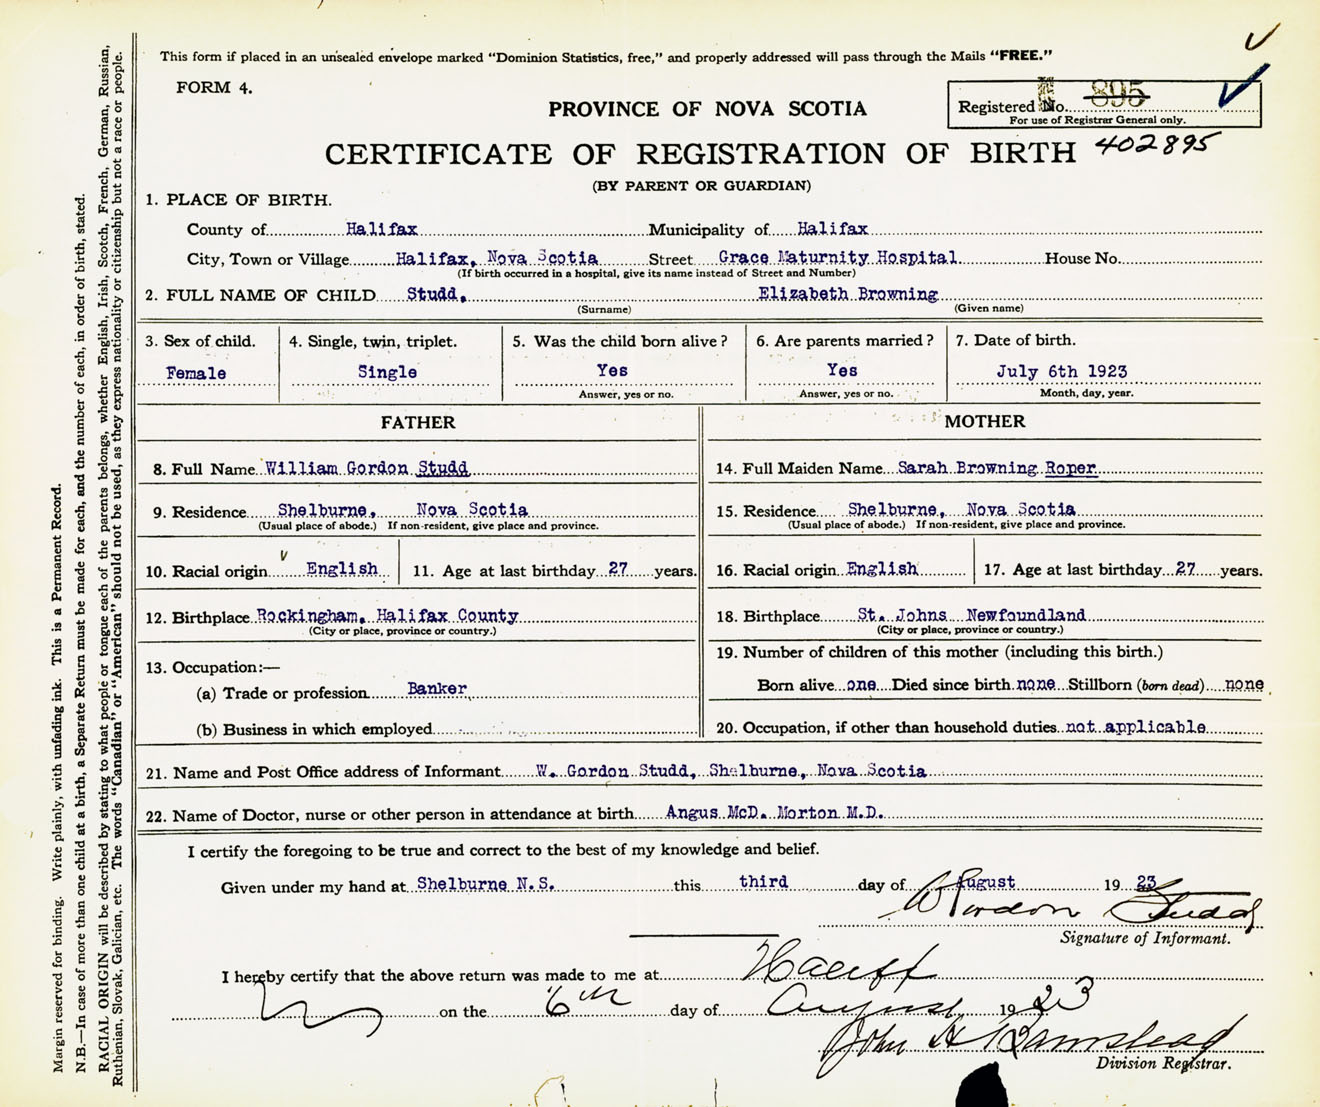 This form if placed in an unsealed envelope marked "Dominion Statistics, free," and properly addressed will pass through the Mails "FREE."
FORM 4.
PROVINCE OF NOVA SCOTIA
Registered No. 895
For use of Registrar General only.
CERTIFICATE OF REGISTRATION OF BIRTH 402895
(BY PARENT OR GUARDIAN)
1. PLACE OF BIRTH.
County of Halifax Municipality of Halifax
City, Town or Village Halifax, Nova Scotia Street Grace Maturnity Hospital House No.
(If birth occurred in a hospital, give its name instead of Street and Number)
2. FULL NAME OF CHILD Studd, Elizabeth Browning
(Surname) (Given name)
3. Sex of child. 4. Single, twin, triplet. 5. Was the child born alive? 6. Are parents married? 7. Date of birth.
Female Single Yes Yes July 6th 1923
Answer, yes or no. Answer, yes or no. Month, day, year.
FATHER MOTHER
8. Full Name William Gordon Studd 14. Full Maiden Name Sarah Browning Roper
9. Residence Shelburne, Nova Scotia 15. Residence Shelburne, Nova Scotia
(Usual place of abode.) If non-resident, give place and province. (Usual place of abode.) If non-resident, give place and province.
10. Racial origin English 11. Age at last birthday 27 years. 16. Racial origin English 17. Age at last birthday 27 years.
12. Birthplace Rockingham, Halifax County 18. Birthplace St. Johns Newfoundland
(City or place, province or country.) (City or place, province or country.)
13. Occupation:— 19. Number of children of this mother (including this birth.)
(a) Trade or profession Banker Born alive one Died since birth none Stillborn (born dead) none
(b) Business in which employed 20. Occupation, if other than household duties not applicable
21. Name and Post Office address of Informant W. Gordon Studd, Shelburne, Nova Scotia
22. Name of Doctor, nurse or other person in attendance at birth Angus McD. Morton M.D.
I certify the foregoing to be true and correct to the best of my knowledge and belief.
Given under my hand at Shelburne N.S. this third day of August 1923
W Gordon Studd
Signature of Informant.
I hereby certify that the above return was made to me at Halifx
on the 6th day of August 1923
John H Barnstead
Division Registrar.
Margin reserved for binding. Write plainly, with unfading ink. This is a Permanent Record.
N.B.—In case of more than one child at a birth, a Separate Return must be made for each, and the number of each, in order of birth, stated.
RACIAL ORIGIN will be described by stating to what people or tongue each of the parents belongs, whether English, Irish, Scotch, French, German, Russian,
Ruthenian, Slovak, Galician, etc. The words "Canadian" or "American" should not be used, as they express nationality or citizenship but not a race or people.